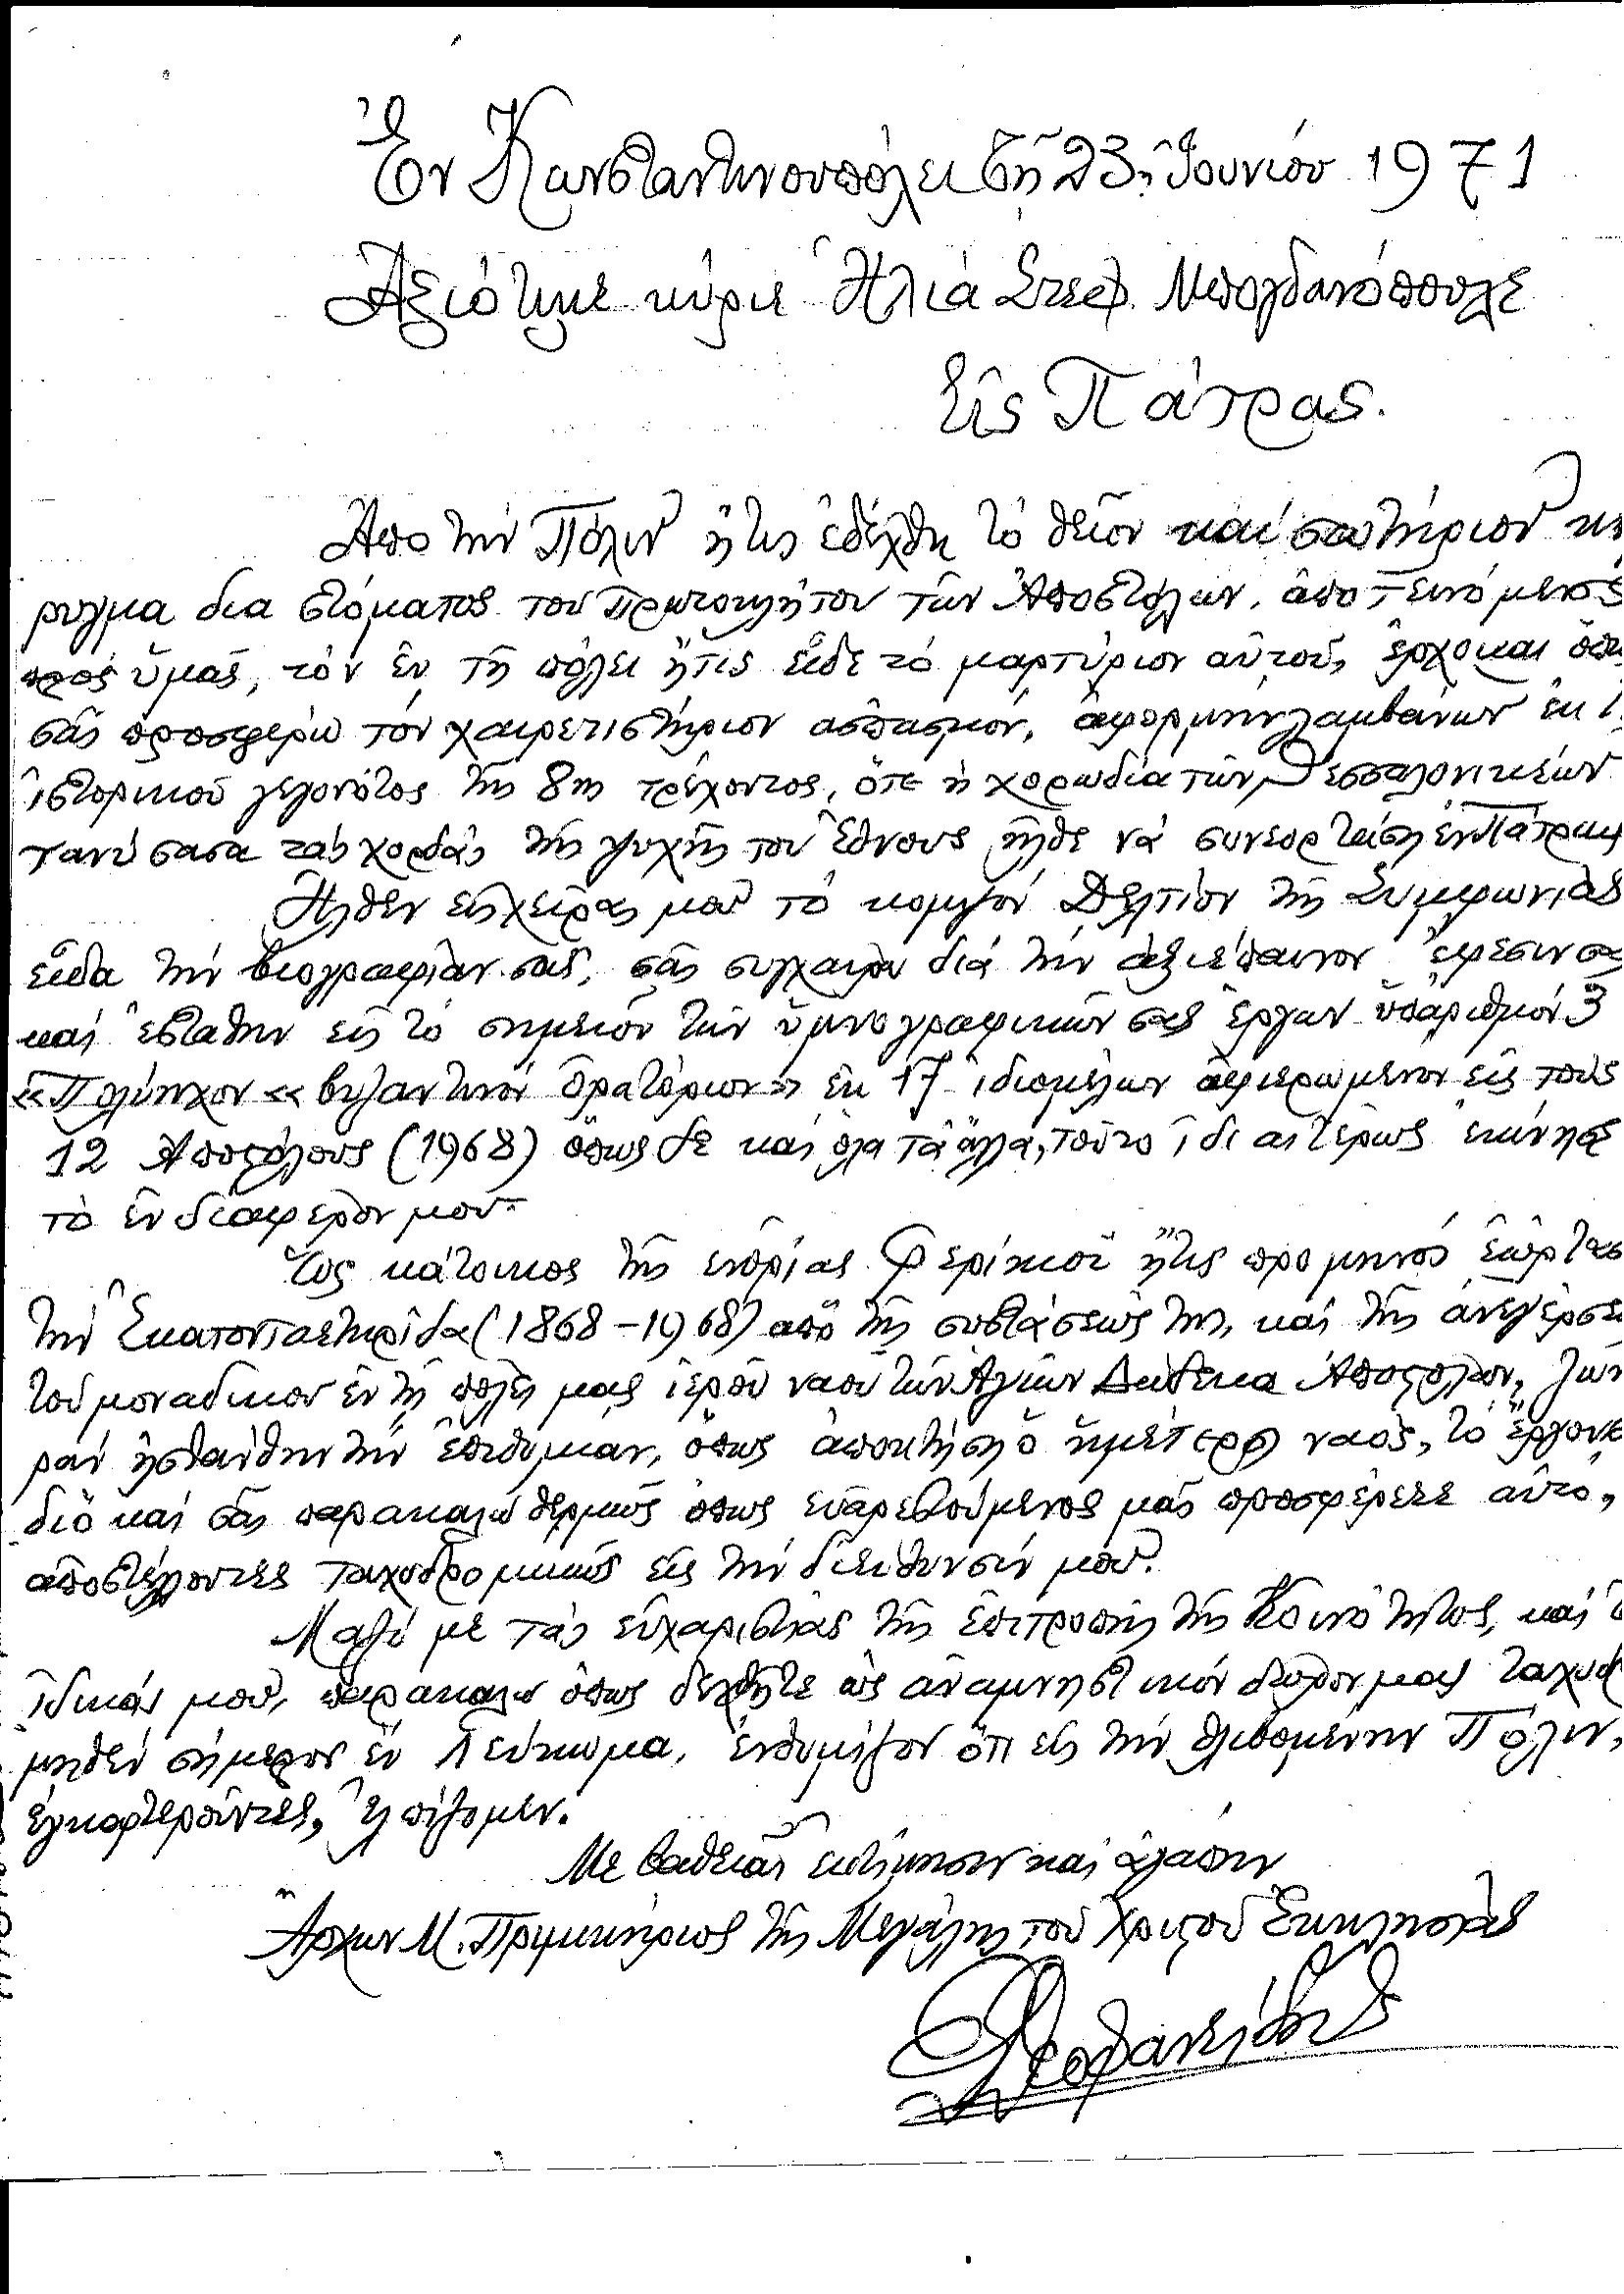 Ἐν Κωνσταντινουπόλει τῇ 23ῃ Ἰουνίου 1971
Ἀξιότιμε κύριε Ἠλία Στεφ. Μπογδανόπουλε
Εἰς Πάτρας.
Ἀπο τὴν Πόλιν ἥτις ἐδέχθη τὸ θεῖον καὶ σωτήριον κή
ρυγμα δια στόματος τοῦ Πρωτοκλήτου τῶν Ἀποστόλων, ἀποτεινόμενος
πρὸς ὑμᾶς, τὸν ἐν τῇ πόλει ἥτις εἶδε τὸ μαρτύριον αὐτοῦ, ἔρχομαι ὅπως
σᾶς προσφέρω τὸν χαιρετιστήριον ασπασμόν, ἀφορμὴν λαμβάνων ἐκ τ
ἱστορικοῦ γεγονότος τῆς 8ης τρέχοντος, ὅτε ἡ χορωδία τῶν Θεσσαλονικέων
τανύσασα τὰς χορδὰς τῆς ψυχῆς τοῦ Ἔθνους ἦλθε νὰ συνεορτάσῃ ἐν Πάτραις
Ἦλθεν εἰς χεῖρας μου τὸ κομψὸν Δελτίον τῆς Συμφωνίας
εἶδα τὴν βιογραφίαν σας, σᾶς συγχαίρω διὰ τὴν ἀξιέπαινον ἔφεσιν σας
καὶ ἐστάθην εἰς τὸ σημεῖον τῶν ὑμνογραφικῶν σας ἔργων ὑπ' ἀριθμὸν 3
«Πολύηχον «βυζαντινὸν Ὀρατόριον» ἐκ 17 ἰδιομέλων ἀφιερωμένον εἰς τοὺς
12 Ἀποστόλους (1968) ὅπως δε καὶ ὅλα τὰ ἄλλα, τοῦτο ἰδιαιτέρως ἐκίνησε
τὸ ἐνδιαφέρον μου.
Ὡς κάτοικος τῆς ἐνορίας Φερίκιοϊ ἥτις προ μηνὸς ἑώρτασε
τὴν Ἑκατονταετηρίδα (1868-1968) απὸ τῆς συστάσεώς της, καὶ τῆς ἀνεγέρσεως
τοῦ μοναδικοῦ ἐν τῇ πόλει μας ἱεροῦ ναοῦ τῶν Ἁγίων Δώδεκα Ἀποστόλων, ζωη
ρὰν ᾐσθάνθην τὴν ἐπιθυμίαν, ὅπως ἀποκτήσῃ ὁ ἡμέτερος ναὸς, τὸ ἔργον
διὸ καὶ σᾶς παρακαλῶ θερμῶς ὅπως εὐαρεστούμενος μᾶς προσφέρετε αὐτό,
αποστέλλοντες ταχυδρομικῶς εἰς τὴν διεύθυνσίν μου.
Μαζὺ με τὰς εὐχαριστίας τῆς ἐπιτροπῆς τῆς Κοινότητος, καὶ τ
ἰδικάς μου, παρακαλῶ ὅπως δεχθῆτε ὡς ἀναμνηστικὸν δῶρον μας ταχυδρο
μηθὲν σήμερον ἓν Λεύκωμα, ἐνθυμίζον ὅτι εἰς τὴν θλιβομένην Πόλιν,
ἐγκαρτεροῦντες, ἐλπίζομεν.
Με βαθεῖαν ἐκτίμησιν καὶ ἀγάπην
Ἄρχων Μ. Πριμικήριος τῆς Μεγάλης τοῦ Χριστοῦ Ἐκκλησίας